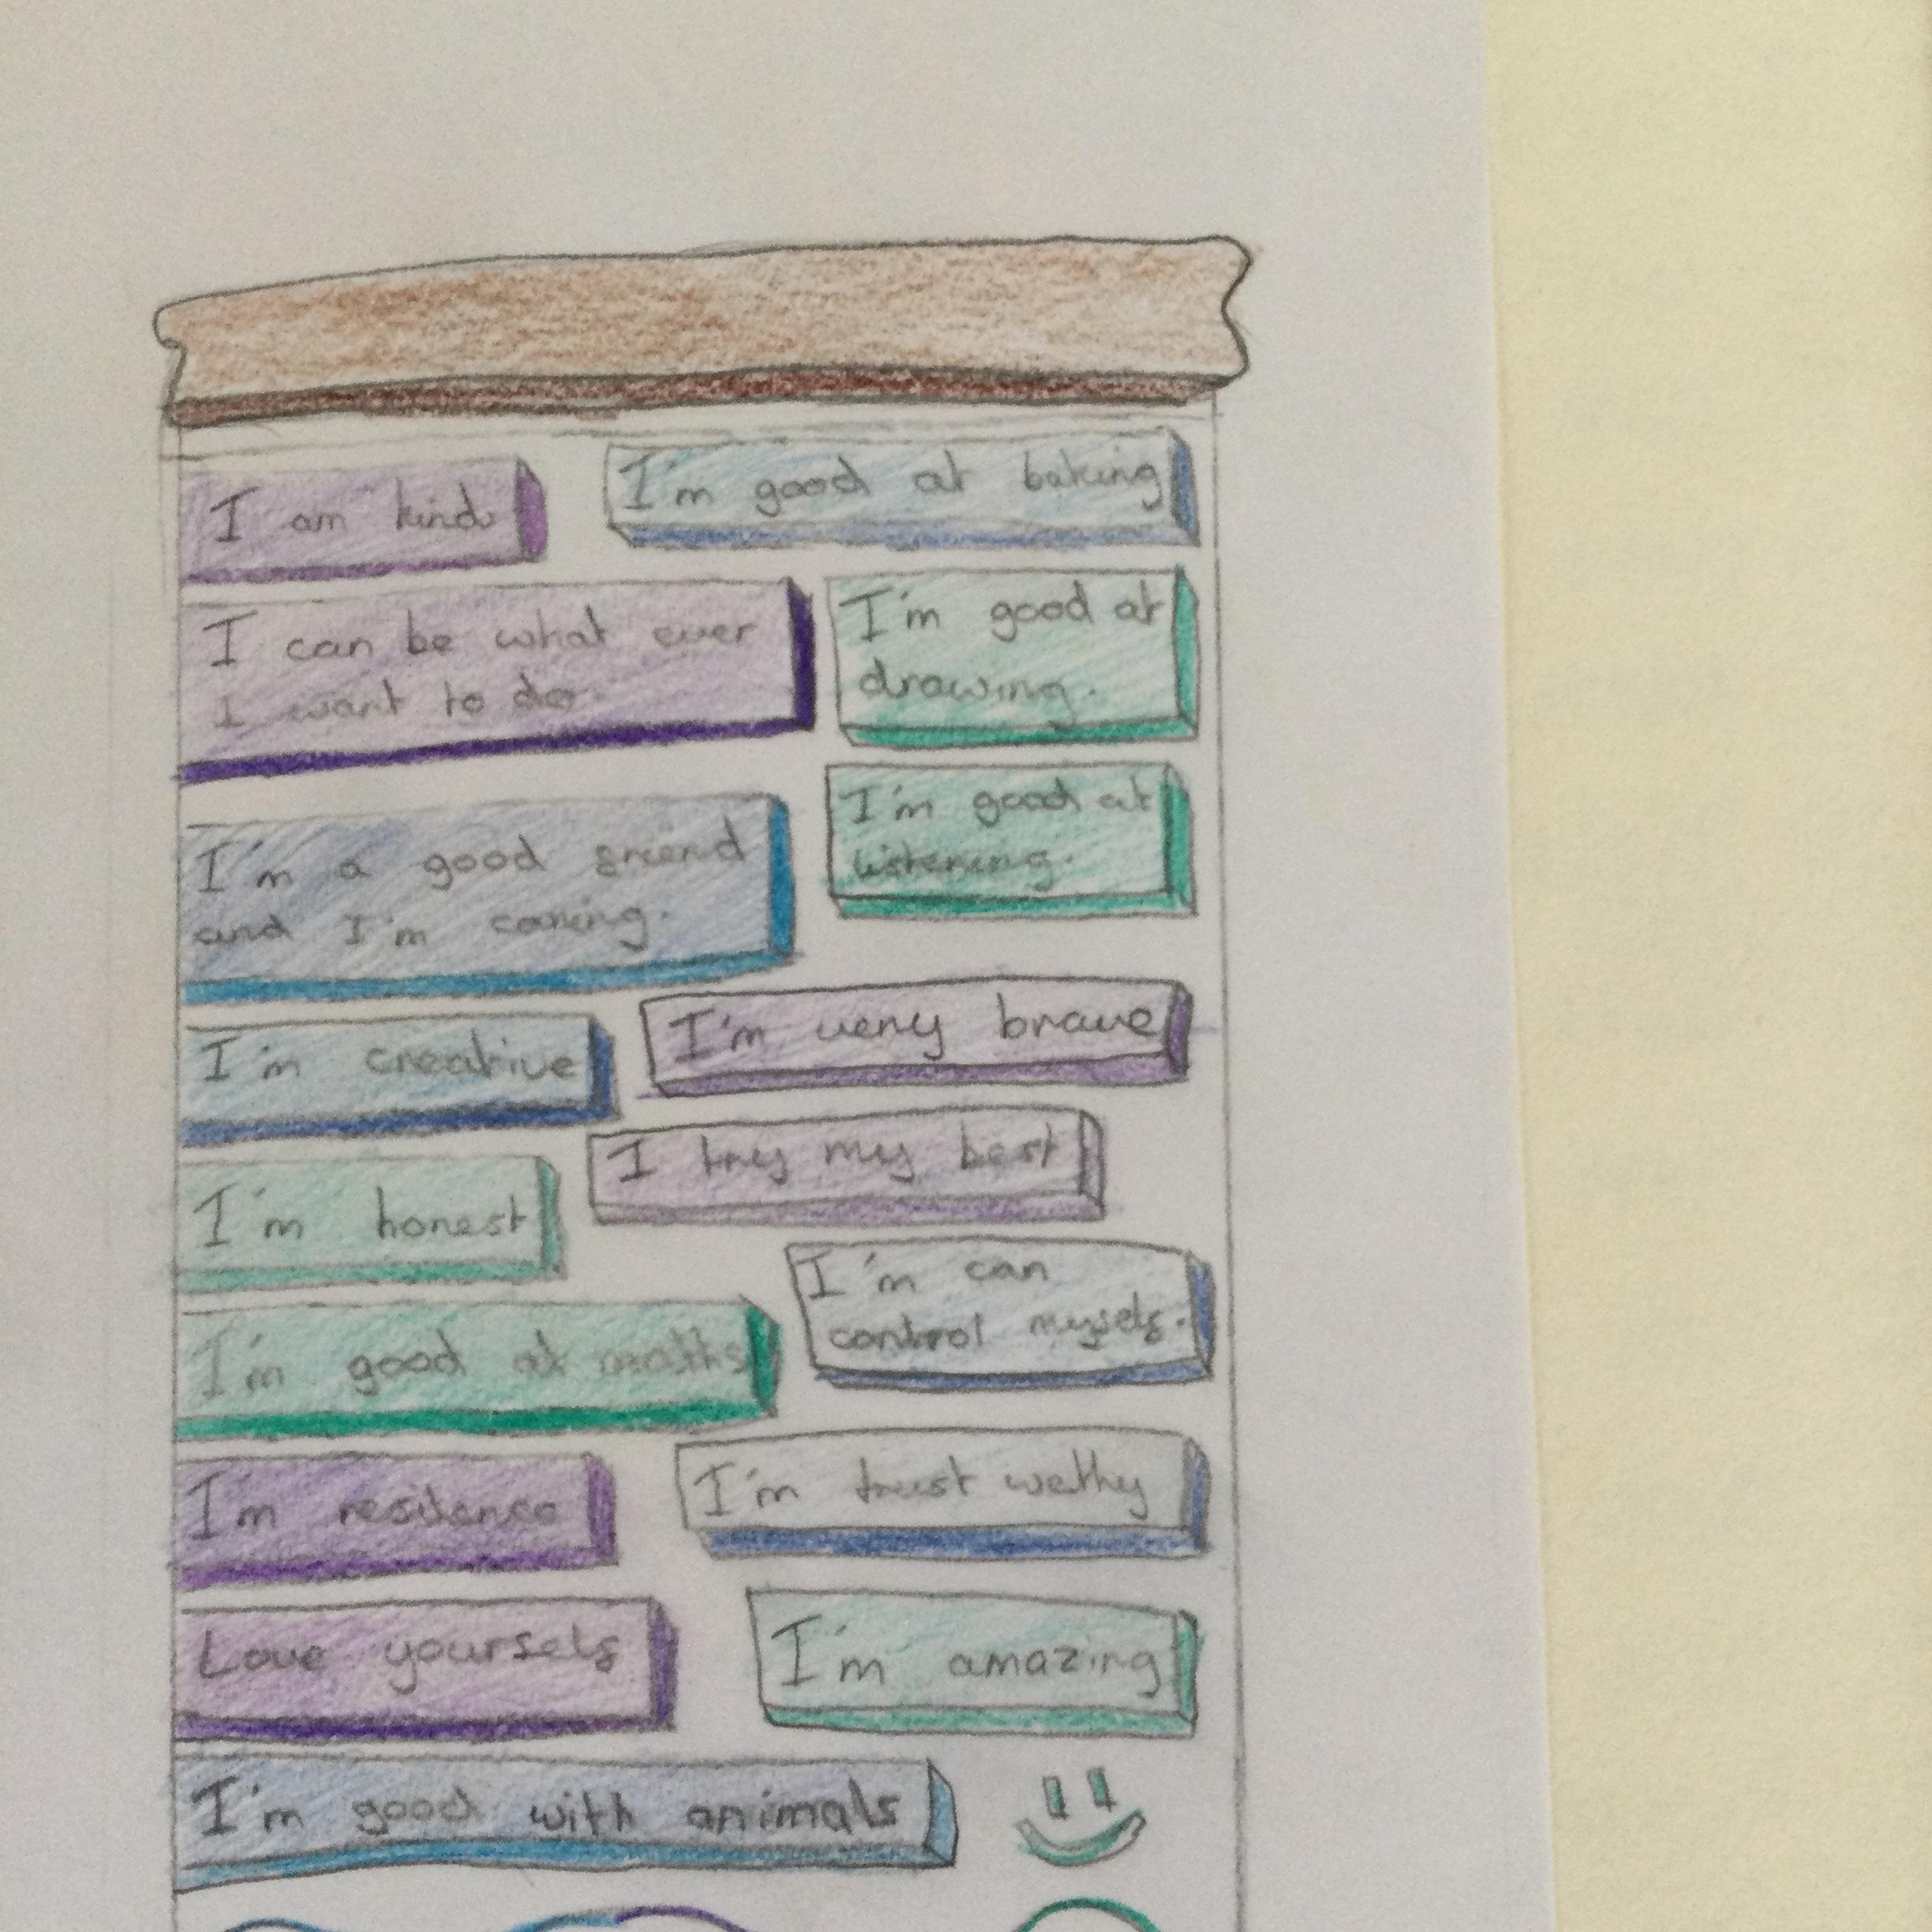 I am kind
I'm good at baking
I can be what ever
I want to do.
I'm good at
drawing.
I'm a good friend
and I'm caring.
I'm good at
listening.
I'm creative
I'm very brave
I try my best
I'm honest
I'm can
control myself.
I'm good at maths
I'm resilense
I'm trust wethy
Love yourself
I'm amazing
I'm good with animals